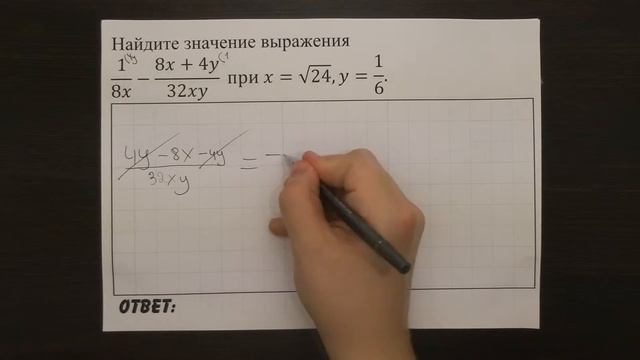 Найдите значение выражения
1/8x (4y − 8x + 4y/32xy (1 при x = √24, y = 1/6.
4y − 8x − 4y/32xy = −
ОТВЕТ: